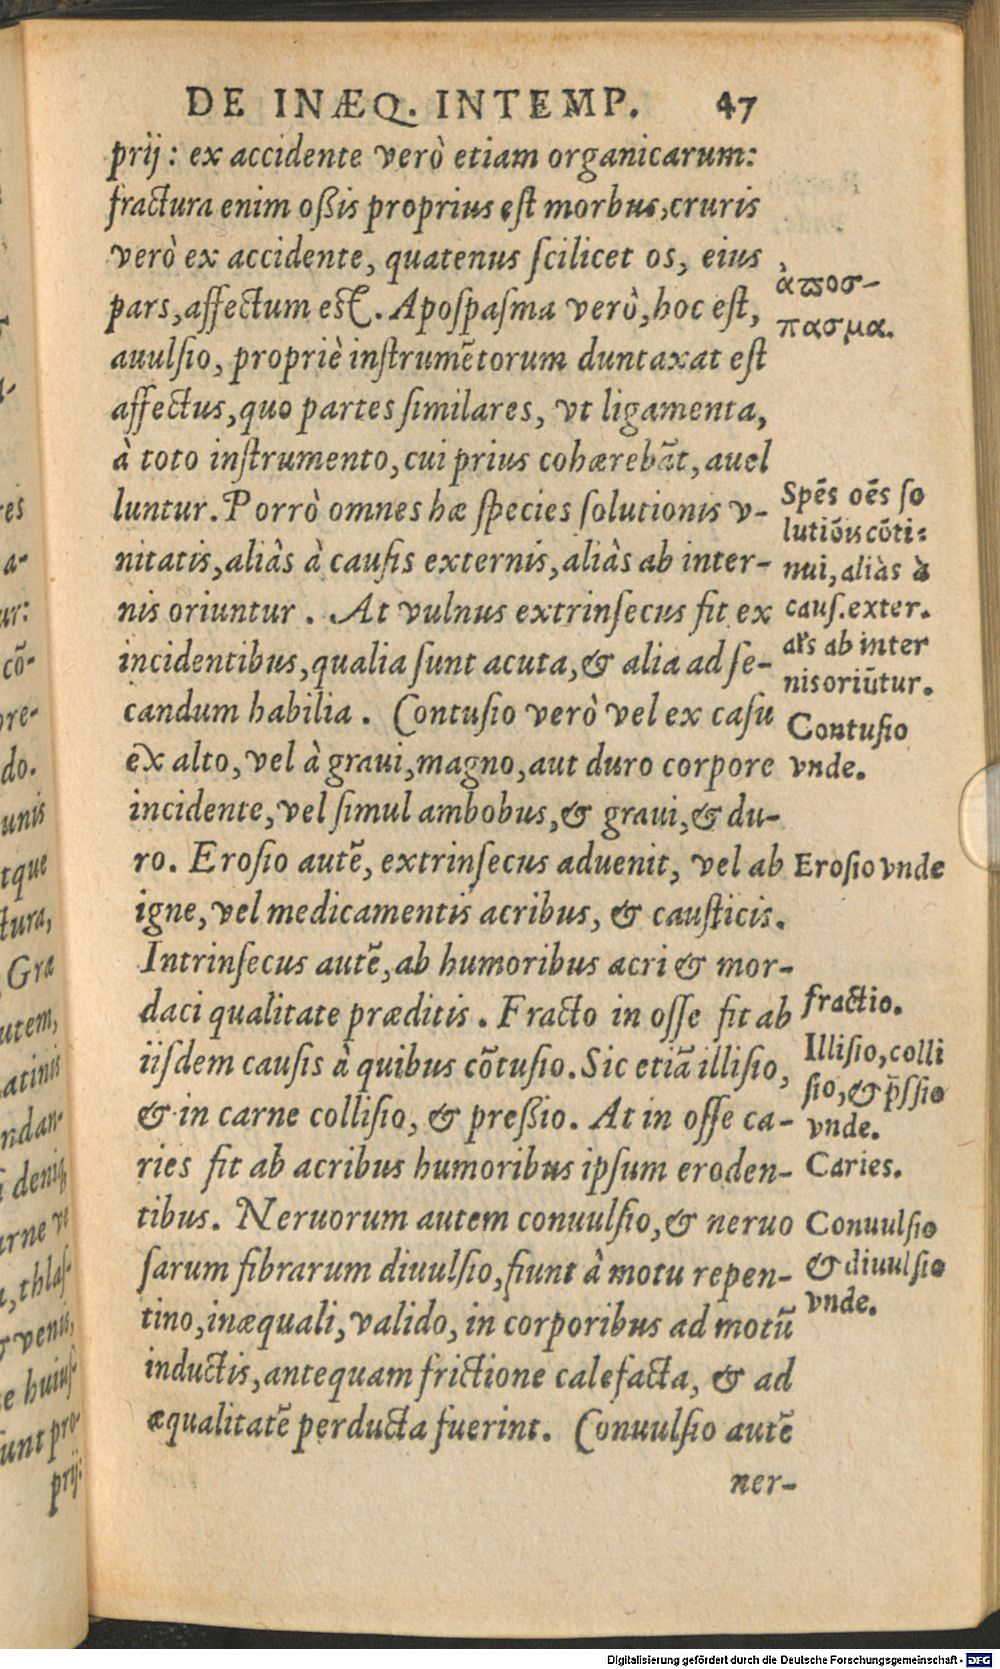 DE INÆQ. INTEMP. 47
prij: ex accidente verò etiam organicarum:
fractura enim oßis proprius est morbus, cruris
verò ex accidente, quatenus scilicet os, eius
pars, affectum est. Apospasma verò, hoc est,
auulsio, propriè instrumẽtorum duntaxat est
affectus, quo partes similares, vt ligamenta,
à toto instrumento, cui prius cohærebãt, auel
luntur. Porrò omnes hæ species solutionis v-
nitatis, aliàs à causis externis, aliàs ab inter-
nis oriuntur. At vulnus extrinsecus fit ex
incidentibus, qualia sunt acuta, & alia ad se-
candum habilia. Contusio verò vel ex casu
ex alto, vel à graui, magno, aut duro corpore
incidente, vel simul ambobus, & graui, & du-
ro. Erosio autẽ, extrinsecus aduenit, vel ab
igne, vel medicamentis acribus, & causticis.
Intrinsecus autẽ, ab humoribus acri & mor-
daci qualitate præditis. Fracto in osse fit ab
iisdem causis à quibus cõtusio. Sic etiã illisio,
& in carne collisio, & preßio. At in osse ca-
ries fit ab acribus humoribus ipsum eroden-
tibus. Neruorum autem conuulsio, & neruo
sarum fibrarum diuulsio, fiunt à motu repen-
tino, inæquali, valido, in corporibus ad motũ
inductis, antequam frictione calefacta, & ad
æqualitatẽ perducta fuerint. Conuulsio autẽ
ner-
ἀποσ-
πασμα.
Spẽs oẽs so
lutiõis cõti:
nui, aliàs à
caus. exter.
al's ab inter
nis oriũtur.
Contusio
vnde.
Erosio vnde
fractio.
Illisio, colli
sio, & p̃ssio
vnde.
Caries.
Conuulsio
& diuulsio
vnde.
res
a-
ur:
cõ-
pre-
do.
unis
tque
ctura,
Græ
utem,
atinis
ndan-
deniq;
arne ve
, thlas-
venis,
e huius-
sunt pro-
prij:
Digitalisierung gefördert durch die Deutsche Forschungsgemeinschaft - DFG